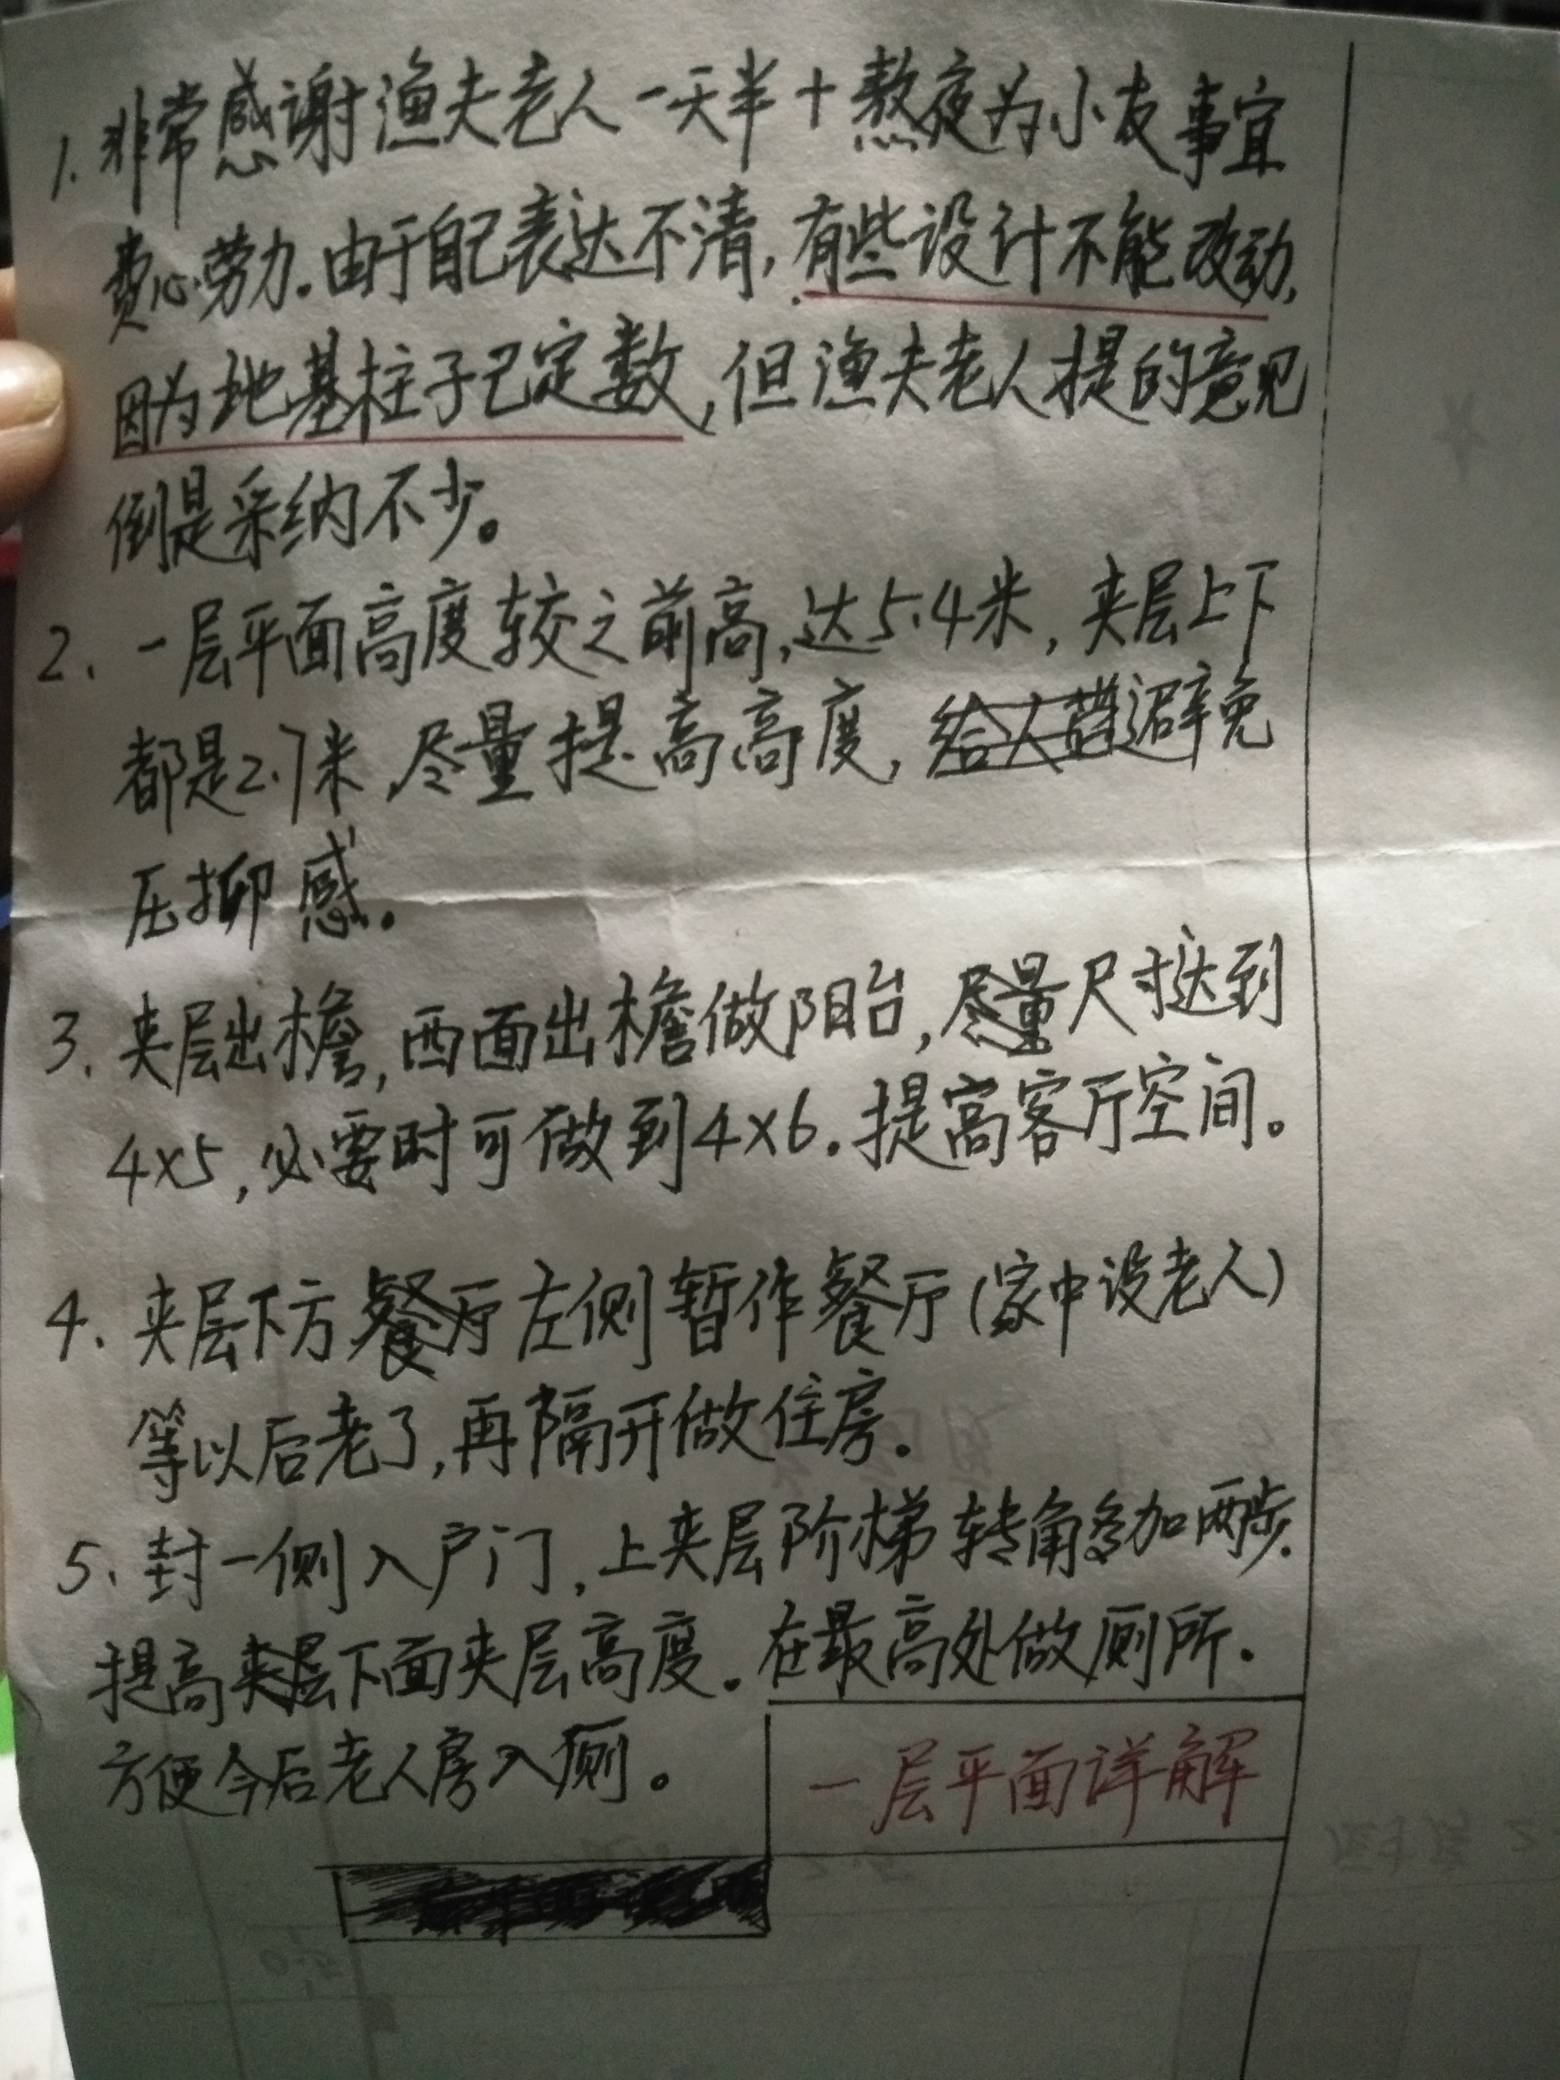 1. 非常感谢渔夫老人一天半+熬夜为小友事宜
费心劳力.由于自己表达不清,有些设计不能改动,
因为地基柱子已定数,但渔夫老人提的意见
倒是采纳不少。
2、一层平面高度较之前高,达5.4米,夹层上下
都是2.7米,尽量提高高度,避免
压抑感.
3、夹层出檐,西面出檐做阳台,尽量尺寸达到
4×5,必要时可做到4×6.提高客厅空间。
4、夹层下方餐厅左侧暂作餐厅(家中没老人)
等以后老了,再隔开做住房.
5、封一侧入户门,上夹层阶梯转角多加两步.
提高夹层下面夹层高度.在最高处做厕所.
方便今后老人房入厕。
一层平面详解